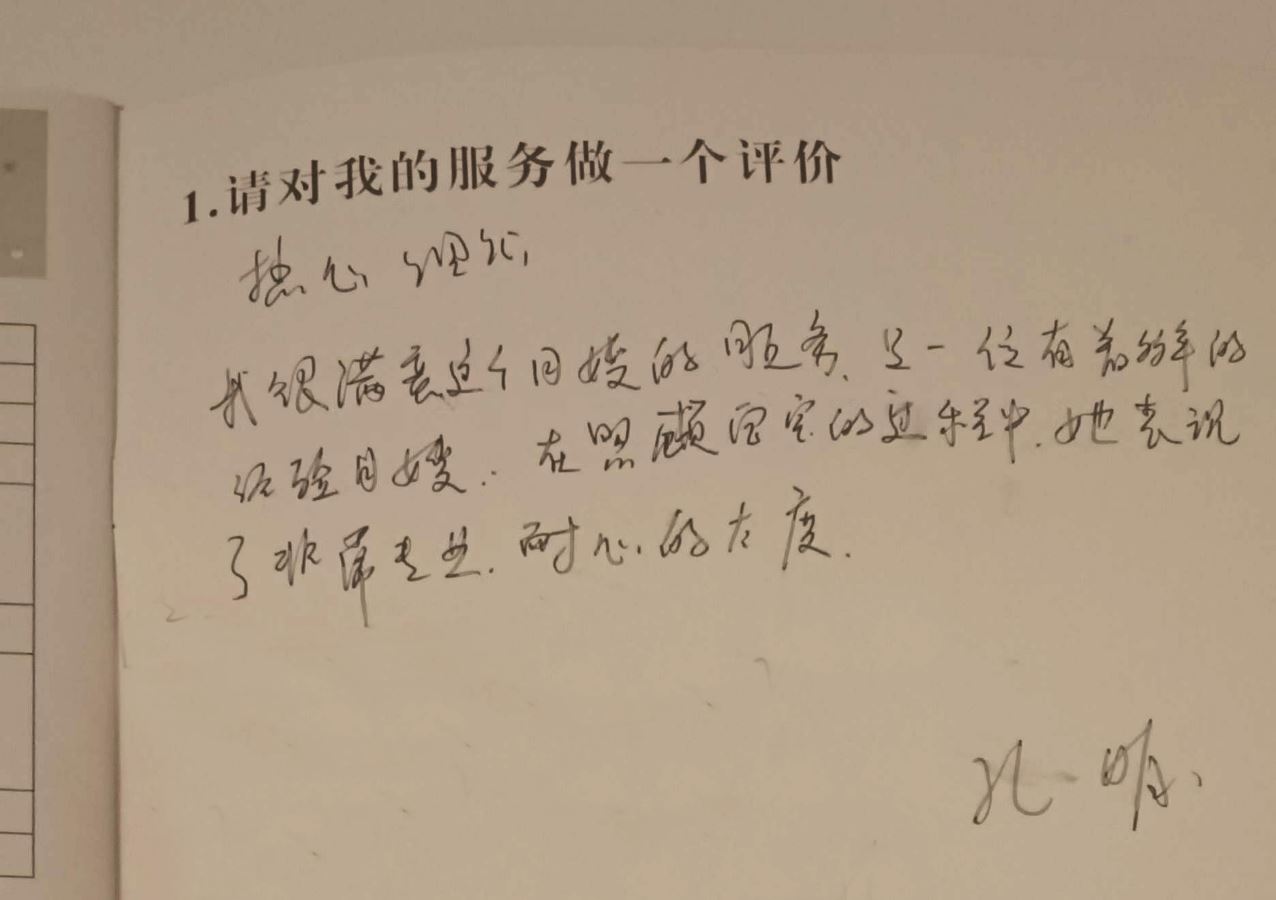 1.请对我的服务做一个评价
热心 细心
我很满意这个月嫂的服务、是一位有着多年的
经验月嫂.在照顾宝宝的过程中.她表现
了非常专业.耐心的太度.
孔一明